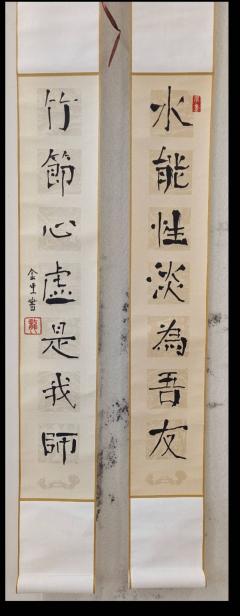 水能性淡為吾友
竹節心虛是我師